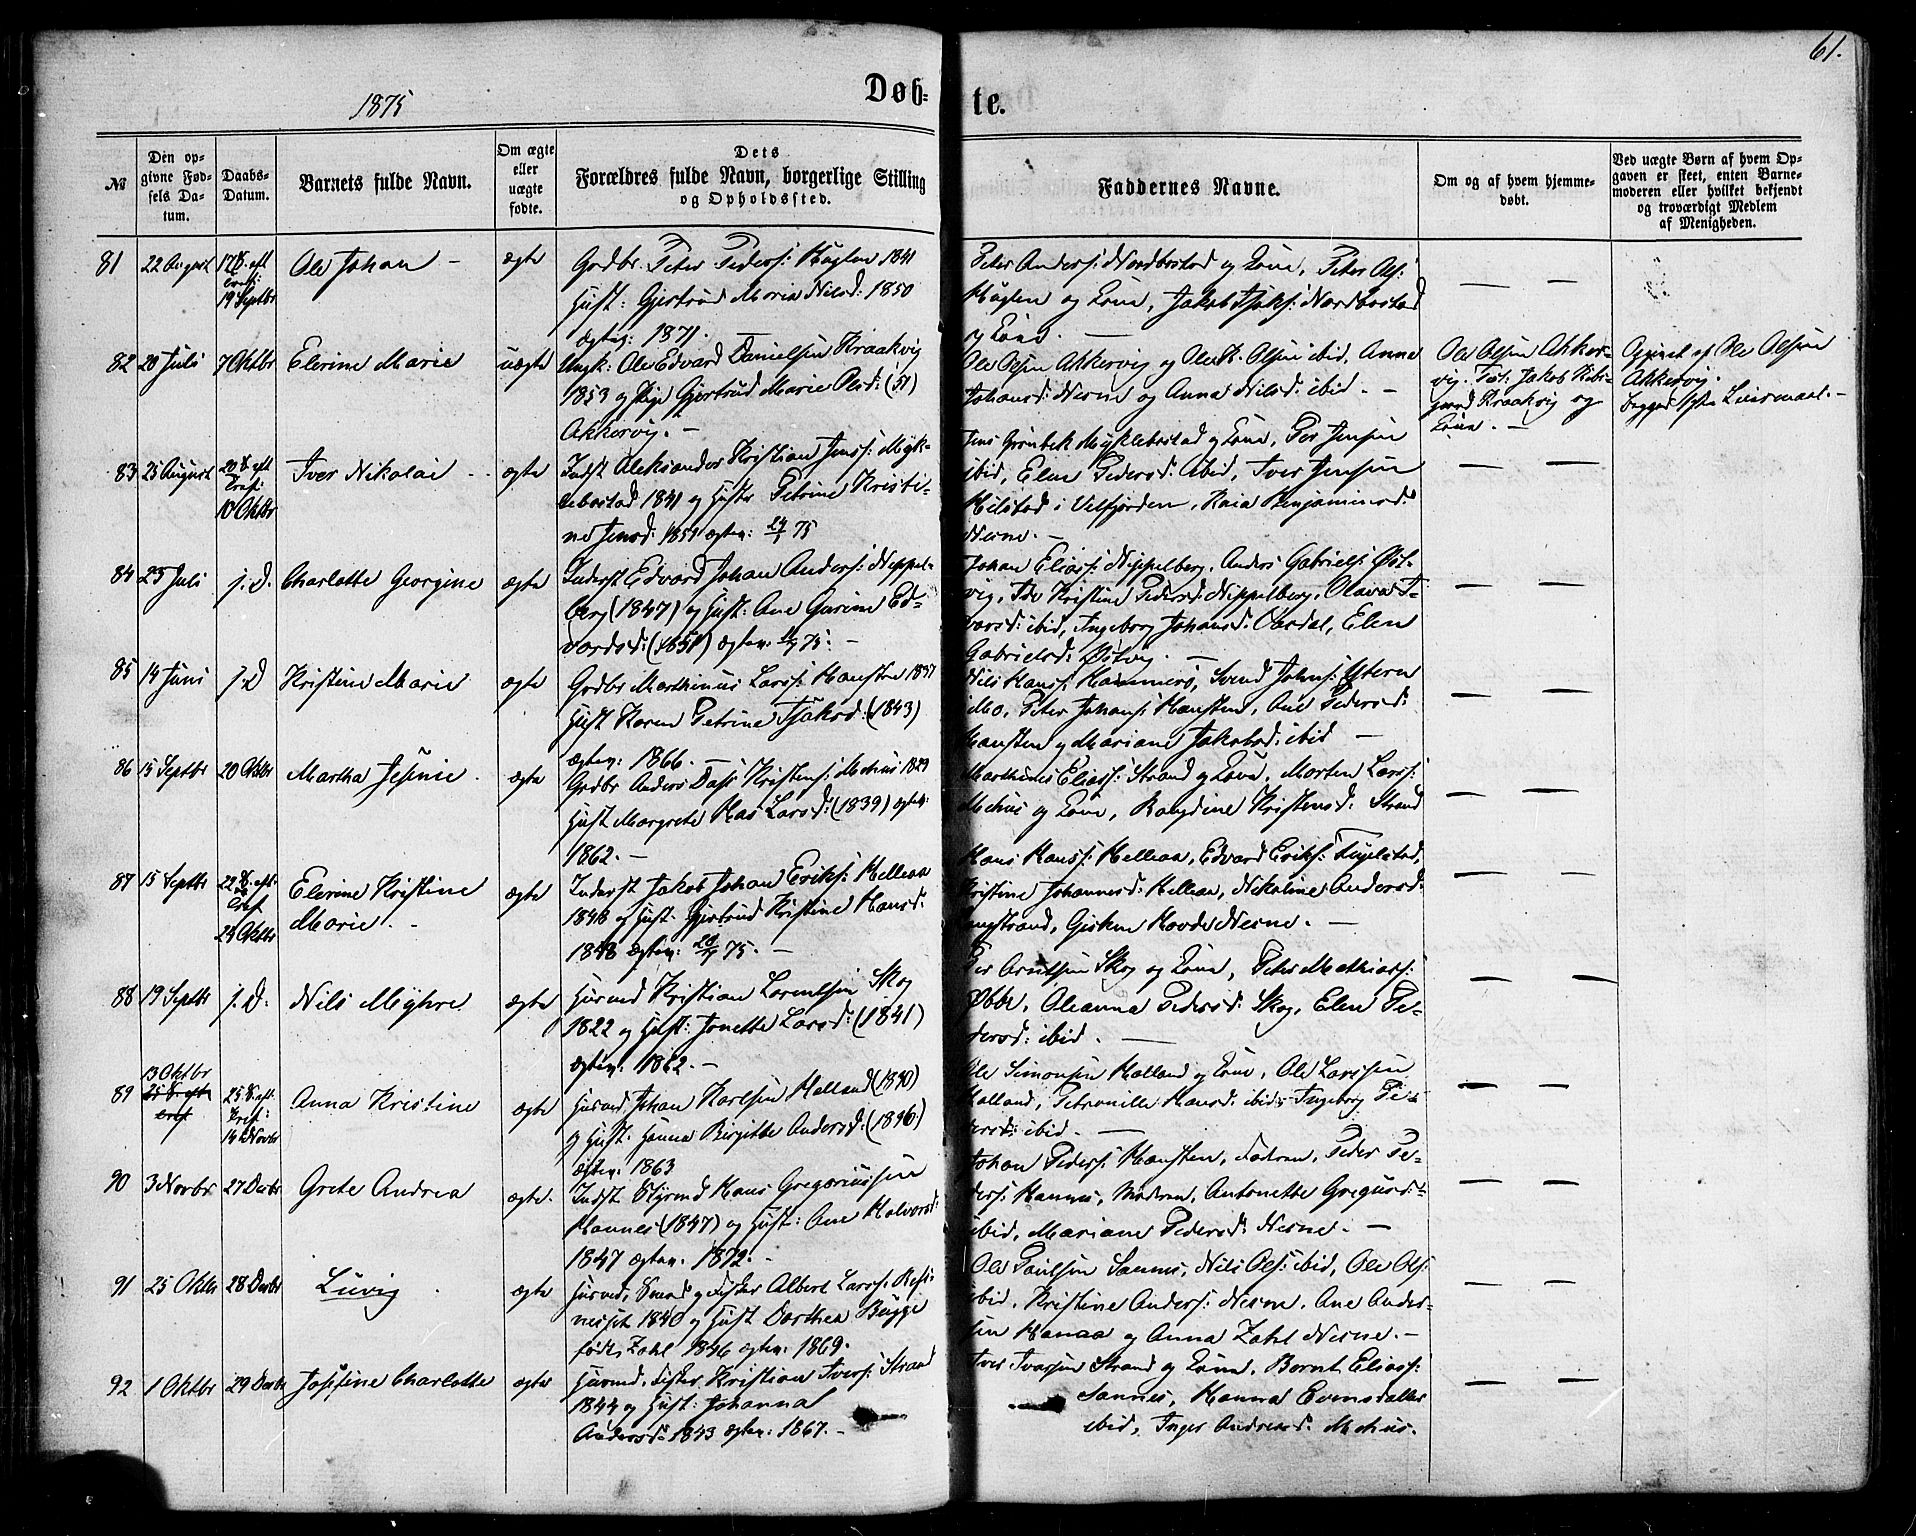 61.
1875
Døb-
te.
№
Den op-
givne Fød-
sels Da-
tum.
Daabs-
Datum.
Barnets fulde Navn.
Om ægte
eller
uægte
fødte.
Dets
Forældres fulde Navn, borgerlige Stilling
og Opholdssted.
Faddernes Navne.
Om og af hvem hjemme-
døbt.
Ved uægte Børn af hvem Op-
gaven er skeet, enten Barne-
moderen eller hvilket bekjendt
og troværdigt Medlem
af Menigheden.
81
22 August
17 S. eft
Tref:
19 Septbr
Ole Johan –
ægte
Grdbr. Peter Peders: Haglen 1841
Hust: Gjertrud Maria Nilsd: 1850
ægtev: 1871. –
Peter Anders: Nordbostad og Kone, Peter Ols:
Haglen og Kone, Jakob Isaks: Nordbostad
og Kone. –
82
20 Juli
7 Oktbr
Elerine Marie
uægte
Ungk: Ole Edvard Danielsen Kraakvig
1853 og Pige Gjertrud Marie Olsd: (51)
Akkervig. –
Ole Olsen Akkervig og Ole K. Olsen ibid, Anne
Johansd: Nesne og Anna Nilsd: ibid. –
Ole Olsen Akker-
vig. Test: Jakob
Kraakvig og
Kone. –
Opgivet af Ole Olsen
Akkervig.
begges 1ste Leiermaal. –
83
25 August
20 S. eft
Tref:
10 Oktbr
Iver Nikolai –
ægte
Inderst Aleksander Kristian Jenss: Myk-
lebostad 1841 og Hustr Petrine Kristi-
ne Jensd: 1851 ægtev: 75
Jens Grønbek Myklebostad og Kone, Per Jensen
ibid, Elen Pedersd: ibid, Iver Jensen
Hilstad i Velfjorden, Kaia Benjaminsd:
Nesne. –
84
25 Juli
j. D.
Charlotte Georgine
ægte
Inderst Edvard Johan Anders: Neppel-
berg (1847) og Hust: Ane Gurine Ed-
vardsd: (1851) ægtev. 75. –
Johan Elias: Nippelberg, Anders Gabriels: Øst-
vig, Ida Kristine Pedersd: Nippelberg, Olava I-
varsd: ibid, Ingeborg Johansd: Aasdal, Elen
Gabrielsd: Østvig. –
85
14 Juni
j. D
Kristine Marie
ægte
Grdbr Marthinus Larss: Hansten 1837
Hust Karen Petrine Isaksd: (1843)
ægtev: 1866. –
Nils Hanss: Hammerø, Svend Johns: Ytern
Mo, Peter Johans: Hansten, Ane Pedersd:
Hansten og Mariane Jakobsd: ibid –
86
15 Septbr
20 Oktbr
Martha Jesine.
ægte
Grdbr Anders Dass Kristens: Mehus 1829
Hust Margrete Has Larsd: (1839) ægtev:
1862. –
Marthinus Elias: Strand og Kone, Morten Larss:
Mehus og Kone, Kristensd: Strand
87
15 Septbr
22 S. eft:
Tref
24 Oktbr
Elerine Kristine
Marie. –
ægte
Inderst Jakob Johan Eriks: Hellean
1848 og Hust: Gjertrud Kristine Hansd:
1848 ægtev: 75. –
Hans Hanss: Hellean, Edvard Eriks: Fugelstad,
Kristine Johannesd: Hellean, Nikoline Andersd:
Hovde Nesne. –
88
19 Septbr
j. D.
Nils Myhre
ægte
Husmd Kristian Lorentsen Skog
1822 og Hust: Jonette Larsd: (1841)
ægtev: 1862. –
Per Arntsen Skog og Kone, Peter Mathiass:
Øbbe, Oleanna Pedersd: Skog, Elen Pe-
dersd: ibid. –
89
13 Oktbr
25 S. eft
tref
25 S. eft
Tref:
14 Novbr
Anna Kristine
ægte
Husmd Johan Karlsen Helland (1840)
og Hust: Hanna Birgitte Andersd: (1846)
ægtev: 1863
Ole Simonsen Halland og Kone, Ole Larssen
Halland, Petronille Hansd: ibid, Ingeborg Pe-
dersd: ibid. –
90
3 Novbr
27 Decbr
Grete Andrea
ægte.
Inderst Styrmd Hans Gregoriussen
Hannes (1847) og Hust: Ane Halvorsd:
1847 ægtev. 1872. –
Johan Peders: Hansten, Fadren, Peder Pe-
ders: Hannes, Moderen, Antonette Gregusd:
ibid, Mariane Pedersd: Nesne. –
91
25 Oktbr
28 Decbr
Luvig.
ægte
Husmd, Smed og Fisker Albert Larss:
1840 og Hust Dorthea Bugge
fød: Zahl 1846 ægtev. 1869. –
Ole Paulsen Sannes, Nils Ols: ibid, Ole Ols:
ibid, Kristine Anders: Nesne, Ane Ander-
sen Hanaa og Anna Zahl Nesne. –
92
1 Oktbr
29 Decbr
Josefine Charlotte
ægte
Husmd, Fisker Kristian Ivers: Strand
1844 og Hust: Johanna
Andersd: 1843 ægtev: 1867. –
Iver Ivarsen Strand og Kone, Bernt Elias:
Sannes, Hanna Evensdatter
ibid, Inger Andreasd: Mehus.